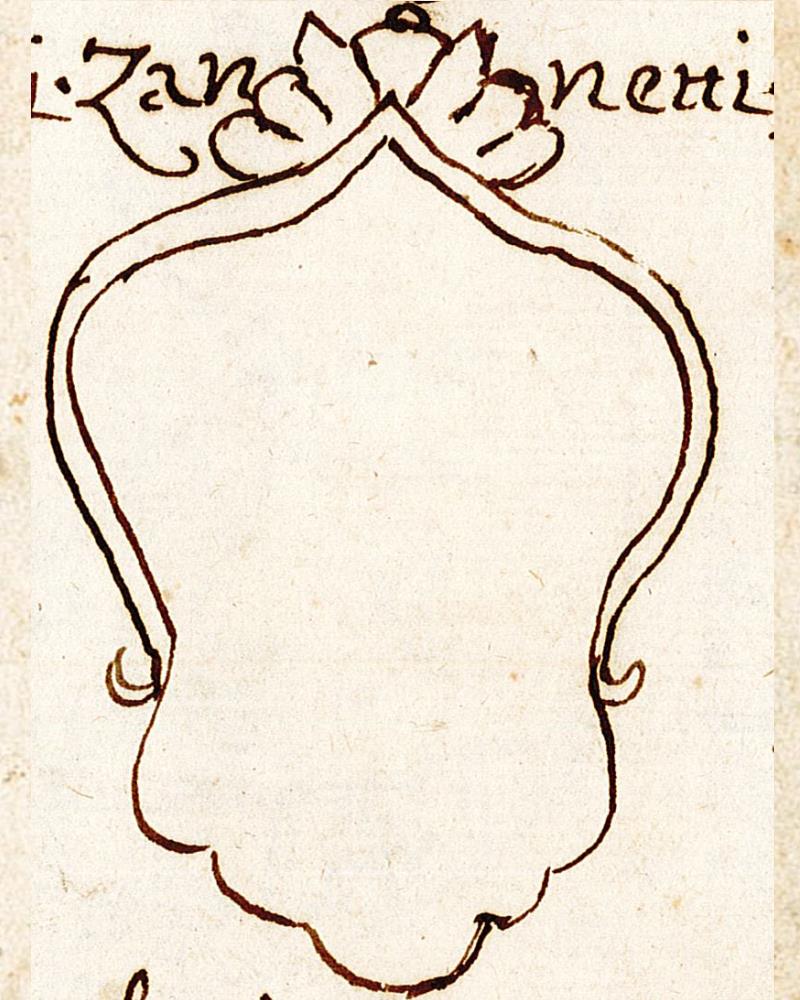 i. Zan netti